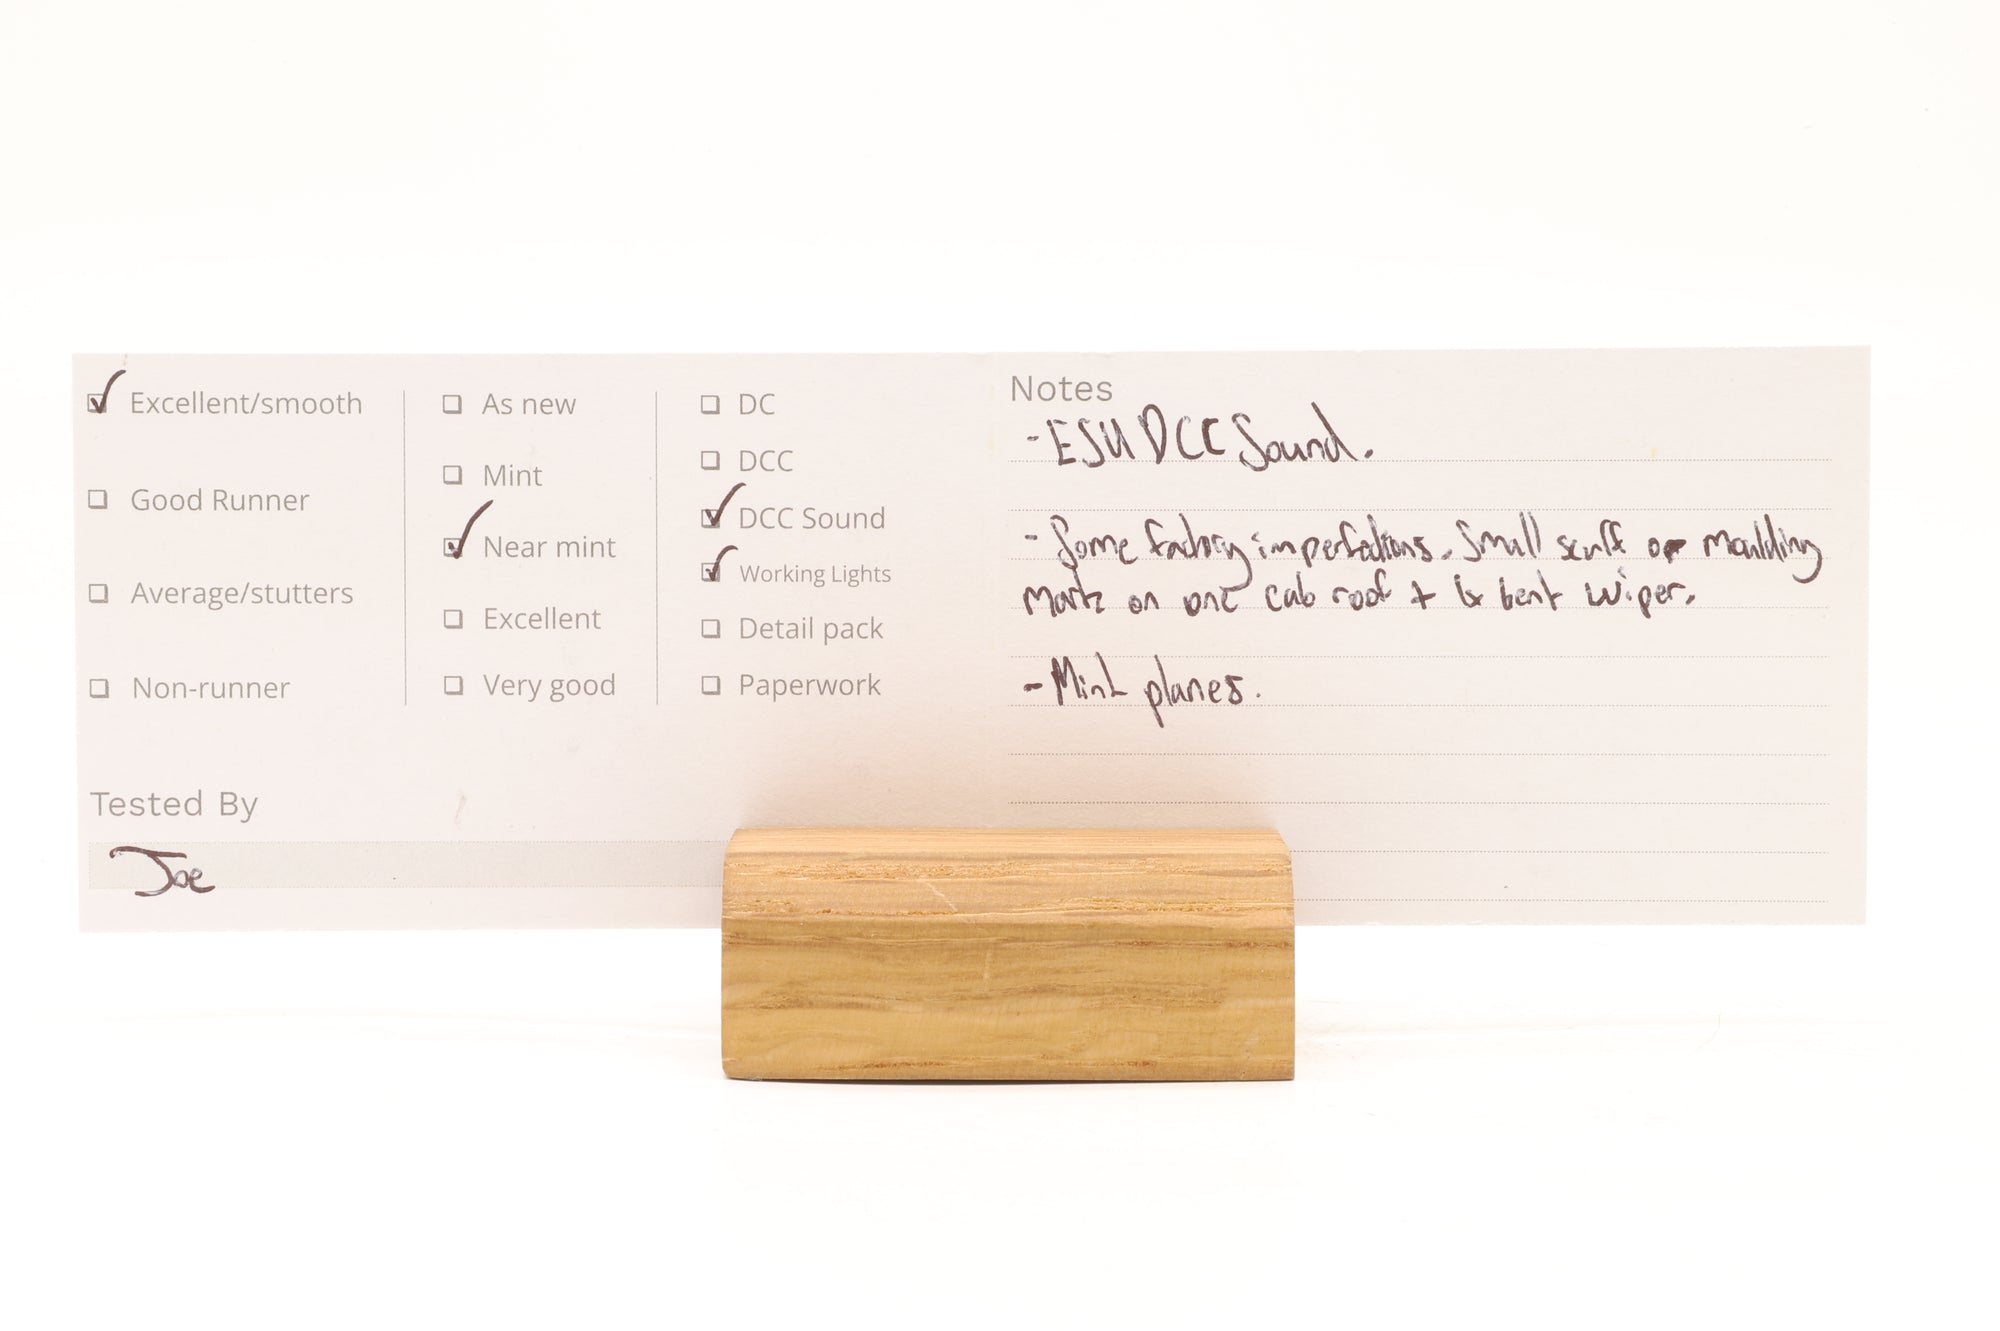 Excellent/smooth
Good Runner
Average/stutters
Non-runner
As new
Mint
Near mint
Excellent
Very good
DC
DCC
DCC Sound
Working Lights
Detail pack
Paperwork
Tested By
Joe
Notes
- ESU DCC Sound.
- Some factory imperfections. Small scuff or moulding
mark on one cab roof + 1x bent wiper.
- Mint planes.